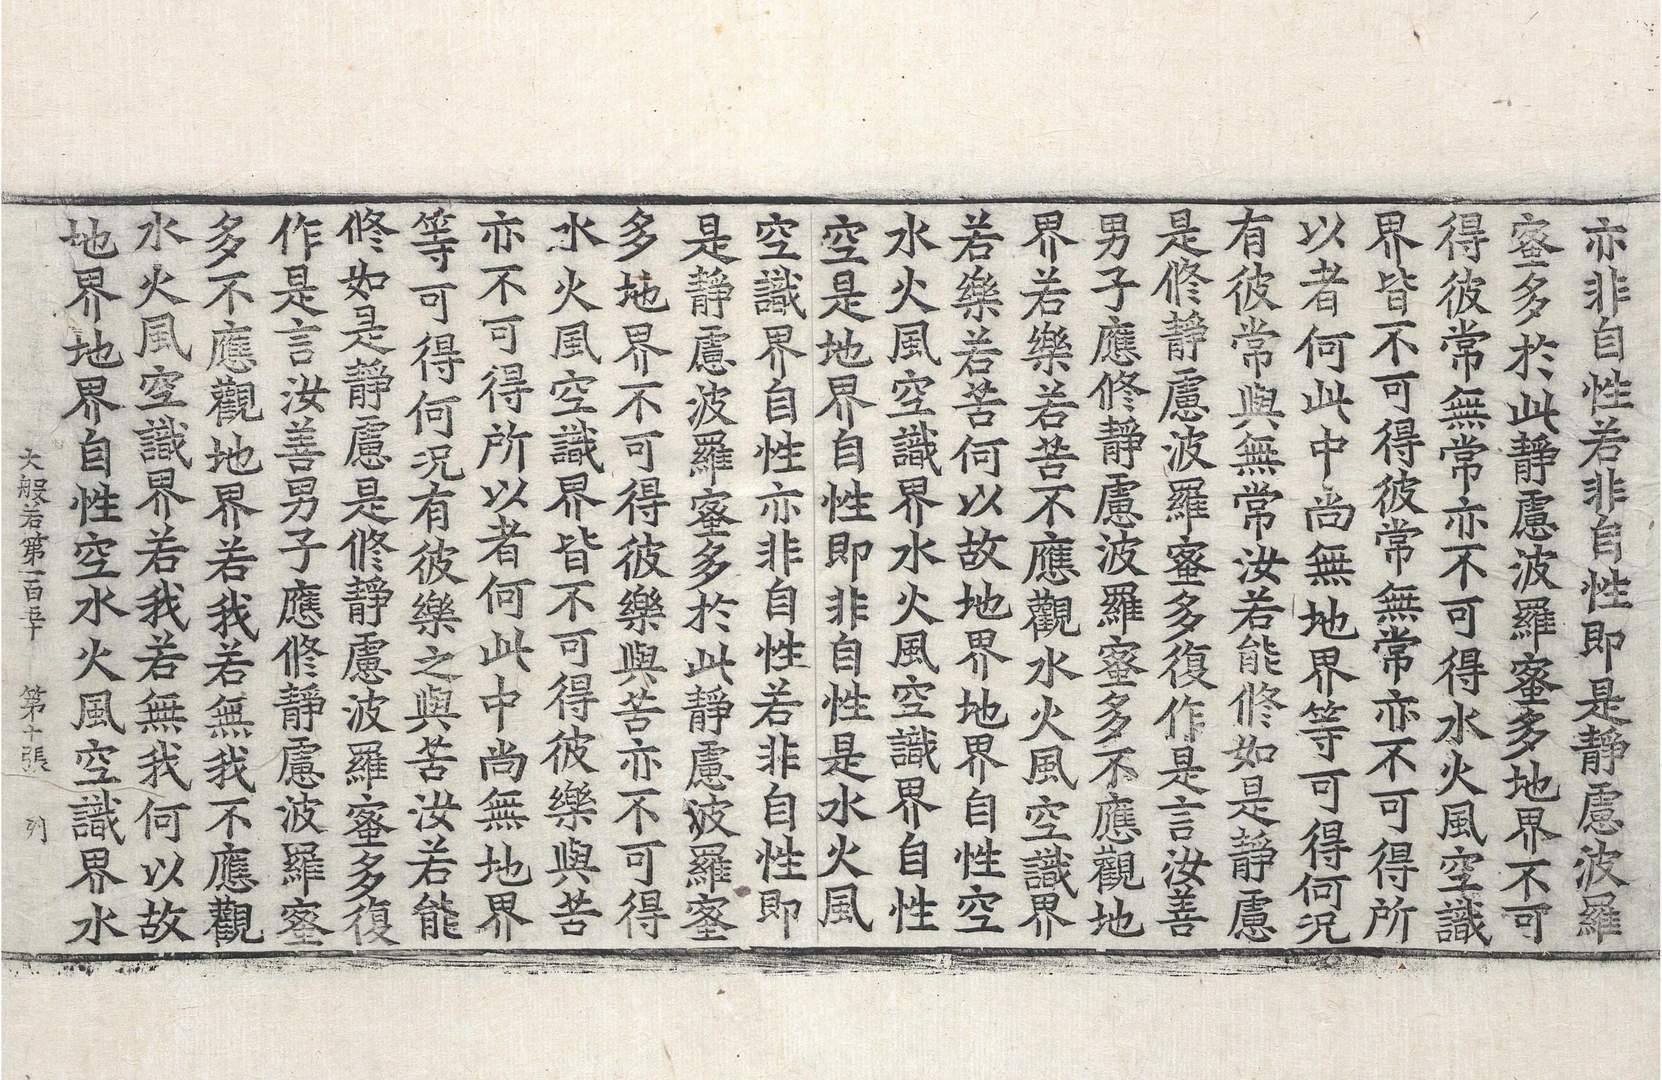 亦非自性若非自性即是靜慮波羅
蜜多於此靜慮波羅蜜多地界不可
得彼常無常亦不可得水火風空識
界皆不可得彼常無常亦不可得所
以者何此中尚無地界等可得何況
有彼常與無常汝若能修如是靜慮
是修靜慮波羅蜜多復作是言汝善
男子應修靜慮波羅蜜多不應觀地
界若樂若苦不應觀水火風空識界
若樂若苦何以故地界地界自性空
水火風空識界水火風空識界自性
空是地界自性即非自性是水火風
空識界自性亦非自性若非自性即
是靜慮波羅蜜多於此靜慮波羅蜜
多地界不可得彼樂與苦亦不可得
水火風空識界皆不可得彼樂與苦
亦不可得所以者何此中尚無地界
等可得何況有彼樂之與苦汝若能
修如是靜慮是修靜慮波羅蜜多復
作是言汝善男子應修靜慮波羅蜜
多不應觀地界若我若無我不應觀
水火風空識界若我若無我何以故
地界地界自性空水火風空識界水
大般若第一百五十 第十張 列